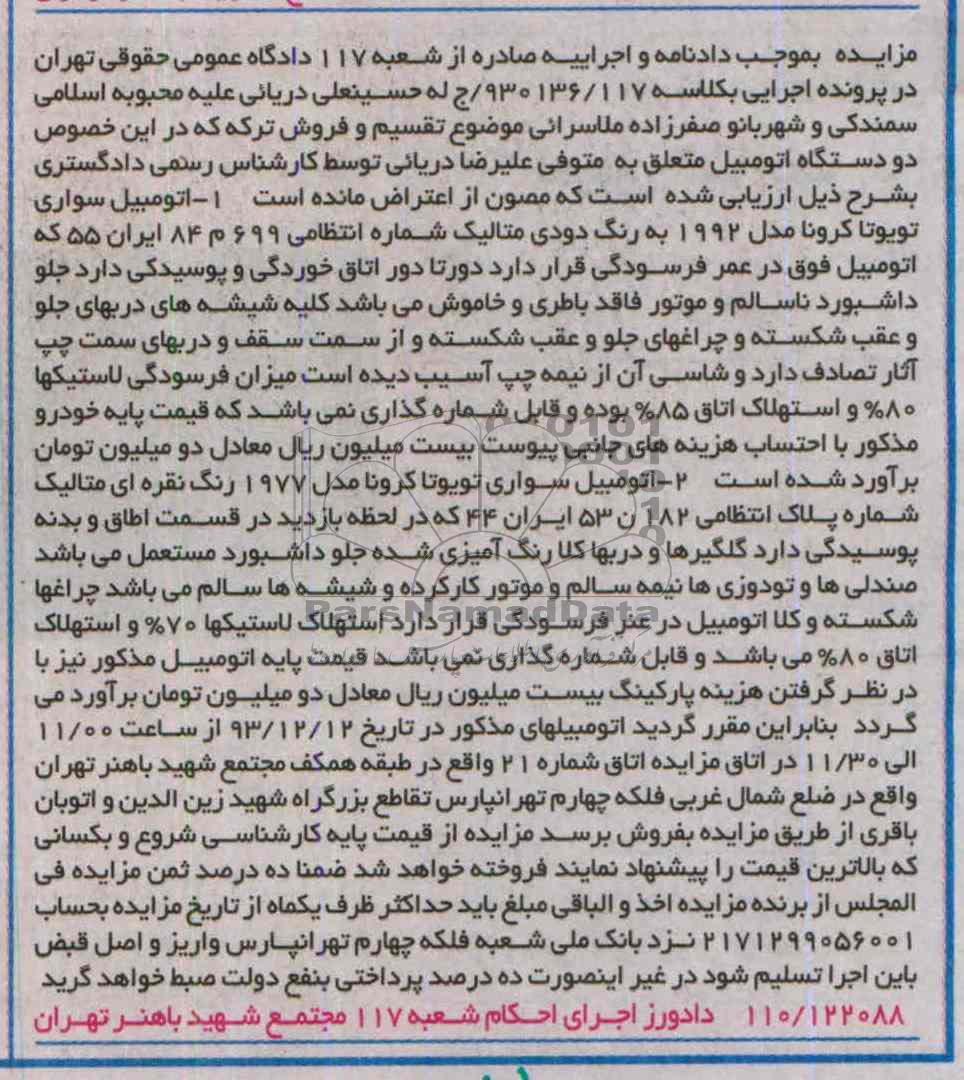 مزایده بموجب دادنامه و اجراییه صادره از شعبه ۱۱۷ دادگاه عمومی حقوقی تهران
در پرونده اجرایی بکلاسه ۹۳۰۱۳۶/۱۱۷/ج له حسینعلی دریائی علیه محبوبه اسلامی
سمندکی و شهربانو صفرزاده ملاسرائی موضوع تقسیم و فروش ترکه که در این خصوص
دو دستگاه اتومبیل متعلق به متوفی علیرضا دریائی توسط کارشناس رسمی دادگستری
بشرح ذیل ارزیابی شده است که مصون از اعتراض مانده است ۱-اتومبیل سواری
تویوتا کرونا مدل ۱۹۹۲ به رنگ دودی متالیک شماره انتظامی ۶۹۹ م ۸۴ ایران ۵۵ که
اتومبیل فوق در عمر فرسودگی قرار دارد دورتا دور اتاق خوردگی و پوسیدکی دارد جلو
داشبورد ناسالم و موتور فاقد باطری و خاموش می باشد کلیه شیشه های دربهای جلو
و عقب شکسته و چراغهای جلو و عقب شکسته و از سمت سقف و دربهای سمت چپ
آثار تصادف دارد و شاسی آن از نیمه چپ آسیب دیده است میزان فرسودگی لاستیکها
۸۰% و استهلاک اتاق ۸۵% بوده و قابل شماره گذاری نمی باشد که قیمت پایه خودرو
مذکور با احتساب هزینه های جانبی پیوست بیست میلیون ریال معادل دو میلیون تومان
برآورد شده است ۲-اتومبیل سواری تویوتا کرونا مدل ۱۹۷۷ رنگ نقره ای متالیک
شماره پلاک انتظامی ۱۸۲ ن ۵۳ ایران ۴۴ که در لحظه بازدید در قسمت اطاق و بدنه
پوسیدگی دارد گلگیرها و دربها کلا رنگ آمیزی شده جلو داشبورد مستعمل می باشد
صندلی ها و تودوزی ها نیمه سالم و موتور کارکرده و شیشه ها سالم می باشد چراغها
ParsNamadData
شکسته و کلا اتومبیل در عمر فرسودگی قرار دارد استهلاک لاستیکها ۷۰% و استهلاک
اتاق ۸۰% می باشد و قابل شماره گذاری نمی باشد قیمت پایه اتومبیل مذکور نیز با
در نظر گرفتن هزینه پارکینگ بیست میلیون ریال معادل دو میلیون تومان برآورد می
گردد بنابراین مقرر گردید اتومبیلهای مذکور در تاریخ ۹۳/۱۲/۱۲ از ساعت ۱۱/۰۰
الی ۱۱/۳۰ در اتاق مزایده اتاق شماره ۲۱ واقع در طبقه همکف مجتمع شهید باهنر تهران
واقع در ضلع شمال غربی فلکه چهارم تهرانپارس تقاطع بزرگراه شهید زین الدین و اتوبان
باقری از طریق مزایده بفروش برسد مزایده از قیمت پایه کارشناسی شروع و بکسانی
که بالاترین قیمت را پیشنهاد نمایند فروخته خواهد شد ضمنا ده درصد ثمن مزایده فی
المجلس از برنده مزایده اخذ و الباقی مبلغ باید حداکثر ظرف یکماه از تاریخ مزایده بحساب
۲۱۷۱۲۹۹۰۵۶۰۰۱ نزد بانک ملی شعبه فلکه چهارم تهرانپارس واریز و اصل قبض
باین اجرا تسلیم شود در غیر اینصورت ده درصد پرداختی بنفع دولت ضبط خواهد گردید
۱۱۰/۱۲۲۰۸۸ دادورز اجرای احکام شعبه ۱۱۷ مجتمع شهید باهنر تهران